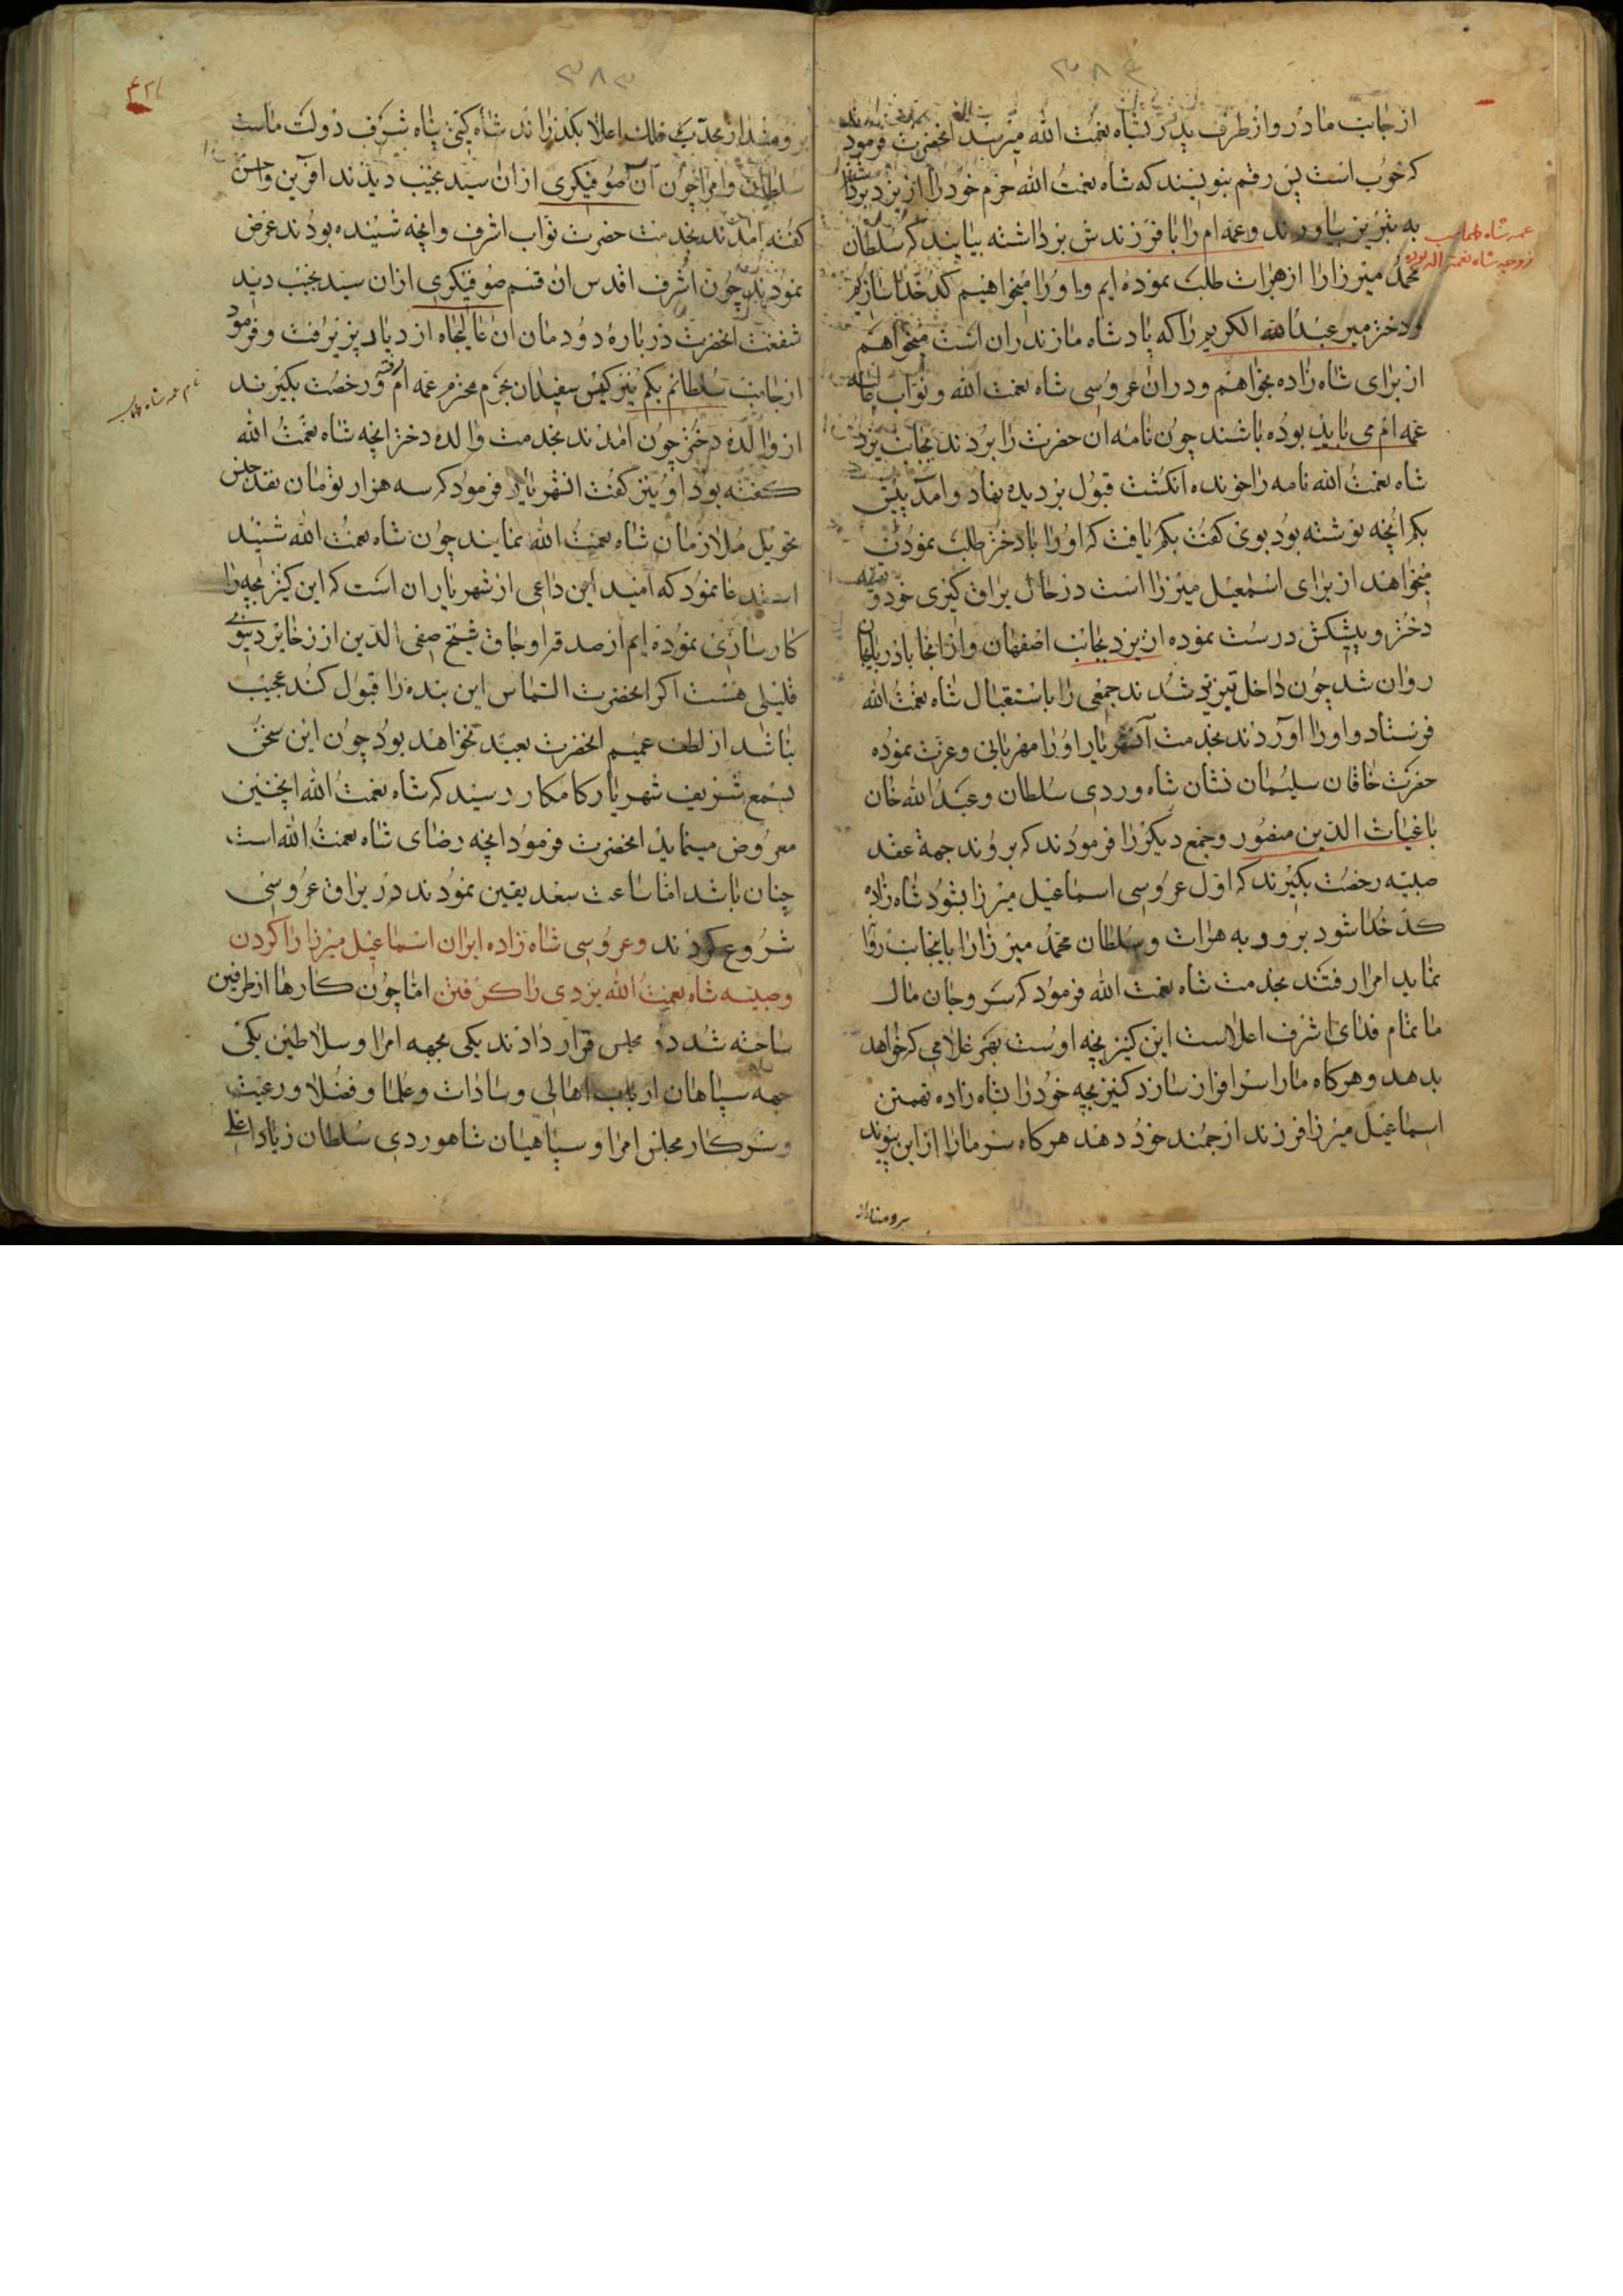 از جانب مادر و از طرف پدر بشاه نعمت الله میرسد انحضرت فرمود
که خوب است پس رقم بنویسند که شاه نعمت الله حرم خود را از یزد بردا
به تبریز بیاورند و عمه ام را با فرزندش برداشته بیایند که سلطان
محمد میرزا را از هرات طلب نموده ایم و او را میخواهیم کدخدا سازیم
و دختر میر عبدالله الکریم را که پادشاه مازندران است میخواهم
از برای شاه زاده بخواهم و در ان عروسی شاه نعمت الله و نواب
عمه ام می باید بوده باشند چون نامه ان حضرت را بردند بجانب یزد
شاه نعمت الله نامه را خونده انکشت قبول بر دیده نهاد و امد پیش
بکم انچه نوشته بود بوی کفت بکم یافت که او را با دختر طلب نمودن
میخواهد از برای اسمعیل میرزا است در حال یراق کیری خود و
دختر و پیشکش درست نموده از یزد بجانب اصفهان و از انجا باذربایجان
روان شد چون داخل تبریز شدند جمعی را باستقبال شاه نعمت الله
فرستاد و او را اوردند بخدمت انشهریار او را مهربانی و عزت نموده
حضرت خاقان سلیمان نشان شاه وردی سلطان و عبدالله خان
با غیاث الدین منصور و جمع دیکر را فرمودند که بروند جهة عقد
صبیه رخصت بکیرند که اول عروسی اسماعیل میرزا بشود شاه زاده
کدخدا شود برود به هرات و سلطان محمد میرزا را باینجانب روا
نماید امرا رفتند بخدمت شاه نعمت الله فرمود که سر و جان مال
ما تمام فدای اشرف اعلاست این کنیز بچه اوست بهر غلامی که خواهد
بدهد و هرکاه ما را سرافراز سازد کنیز بچه خود را بشاه زاده تهمتن
اسماعیل میرزا فرزند ارجمند خود دهد هرکاه سر ما را از این پیوند
برومندار
عمه شاه طهماسب
زوجه شاه نعمة الله بوده
برومند از محدب فلک اعلا بکذراند شاه کیتی پناه شرف دولت ماست
سلطان و امرا چون آن صوفیکری از ان سید عجیب دیدند افرین واحسن
کفته امدند بخدمت حضرت نواب اشرف و انچه شنیده بودند عرض
نمودند چون اشرف اقدس ان قسم صوفیکری از ان سید نجیب دید
شفقت انحضرت در باره دودمان ان عالیجاه ازدیاد پزیرفت و فرمود
از جانب سلطانم بکم نیز کیس سفیدان بحرم محترم عمه ام رفته و رخصت بکیرند
از والده دختر چون امدند بخدمت والده دختر انچه شاه نعمت الله
کفته بود او نیز کفت انشهریار فرمود که سه هزار تومان نقد جنس
تحویل ملازمان شاه نعمت الله نمایند چون شاه نعمت الله شنید
استدعا نمود که امید این داعی از شهریاران است که این کنیز بچه را
کارسازی نموده ایم از صدقه اوجاق شیخ صفی الدین از زخایر دنیوی
قلیلی هست اکر انحضرت التماس این بنده را قبول کند عجیب
نباشد از لطف عمیم انحضرت بعید نخواهد بود چون این سخن
بسمع شریف شهریار کامکار رسید که شاه نعمت الله اینچنین
معروض مینماید انحضرت فرمود انچه رضای شاه نعمت الله است
چنان باشد اما ساعت سعد یقین نمودند در یراق عروسی
شروع کردند و عروسی شاه زاده ایران اسماعیل میرزا را کردن
و صبیه شاه نعمت الله یزدی را کرفتن اما چون کارها از طرفین
ساخته شد دو مجلس قرار دادند یکی بجهه امرا و سلاطین یکی
جهه سپاهان ارباب اهالی و سادات و علما و فضلا و رعیت
و سرکار مجلس امرا و سپاهیان شاهوردی سلطان زیاد
نام عمه شاه طهماسب